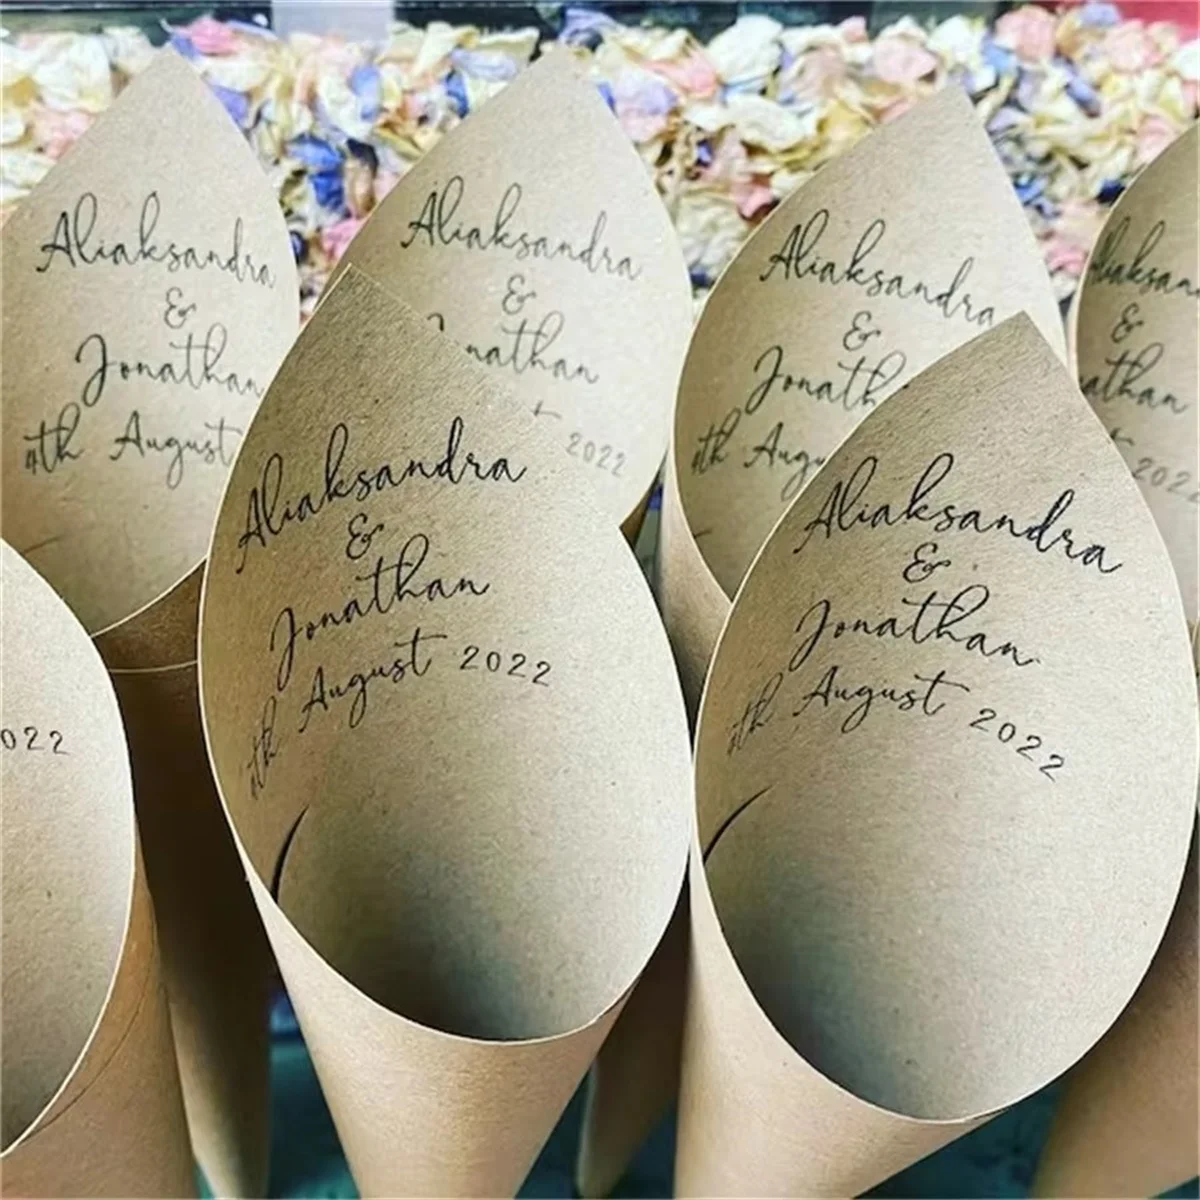 Aliaksandra
&
Jonathan
4th August
Aliaksandra
&
Jonathan
2022
Aliaksandra
&
Jonath
4th Augu
&
2022
022
Aliaksandra
&
Jonathan
4th August 2022
Aliaksandra
&
Jonathan
4th August 2022